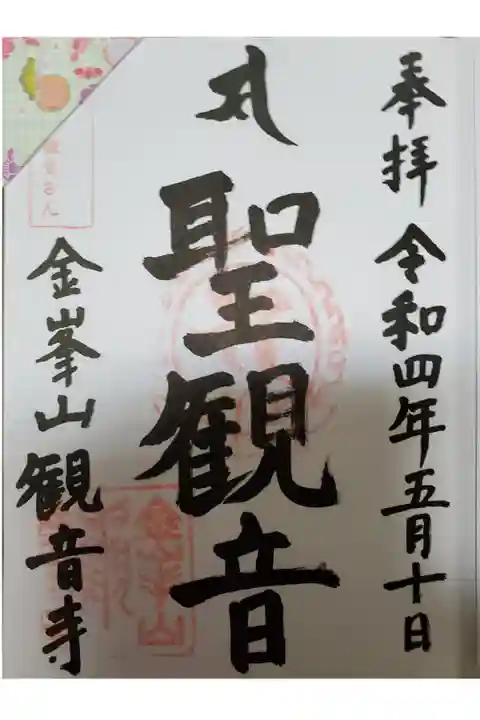 奉拝 令和四年五月十日
聖観音
金峯山観音寺
金峯山